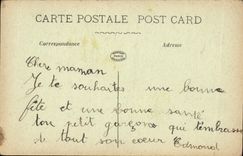 CARTE POSTALE POST CARD
Correspondance Adresse
Chere maman
Je te souhaites une bonne
fête et une bonne santé
ton petit garçons qui t'embrasse
de tout son coeur Edmond